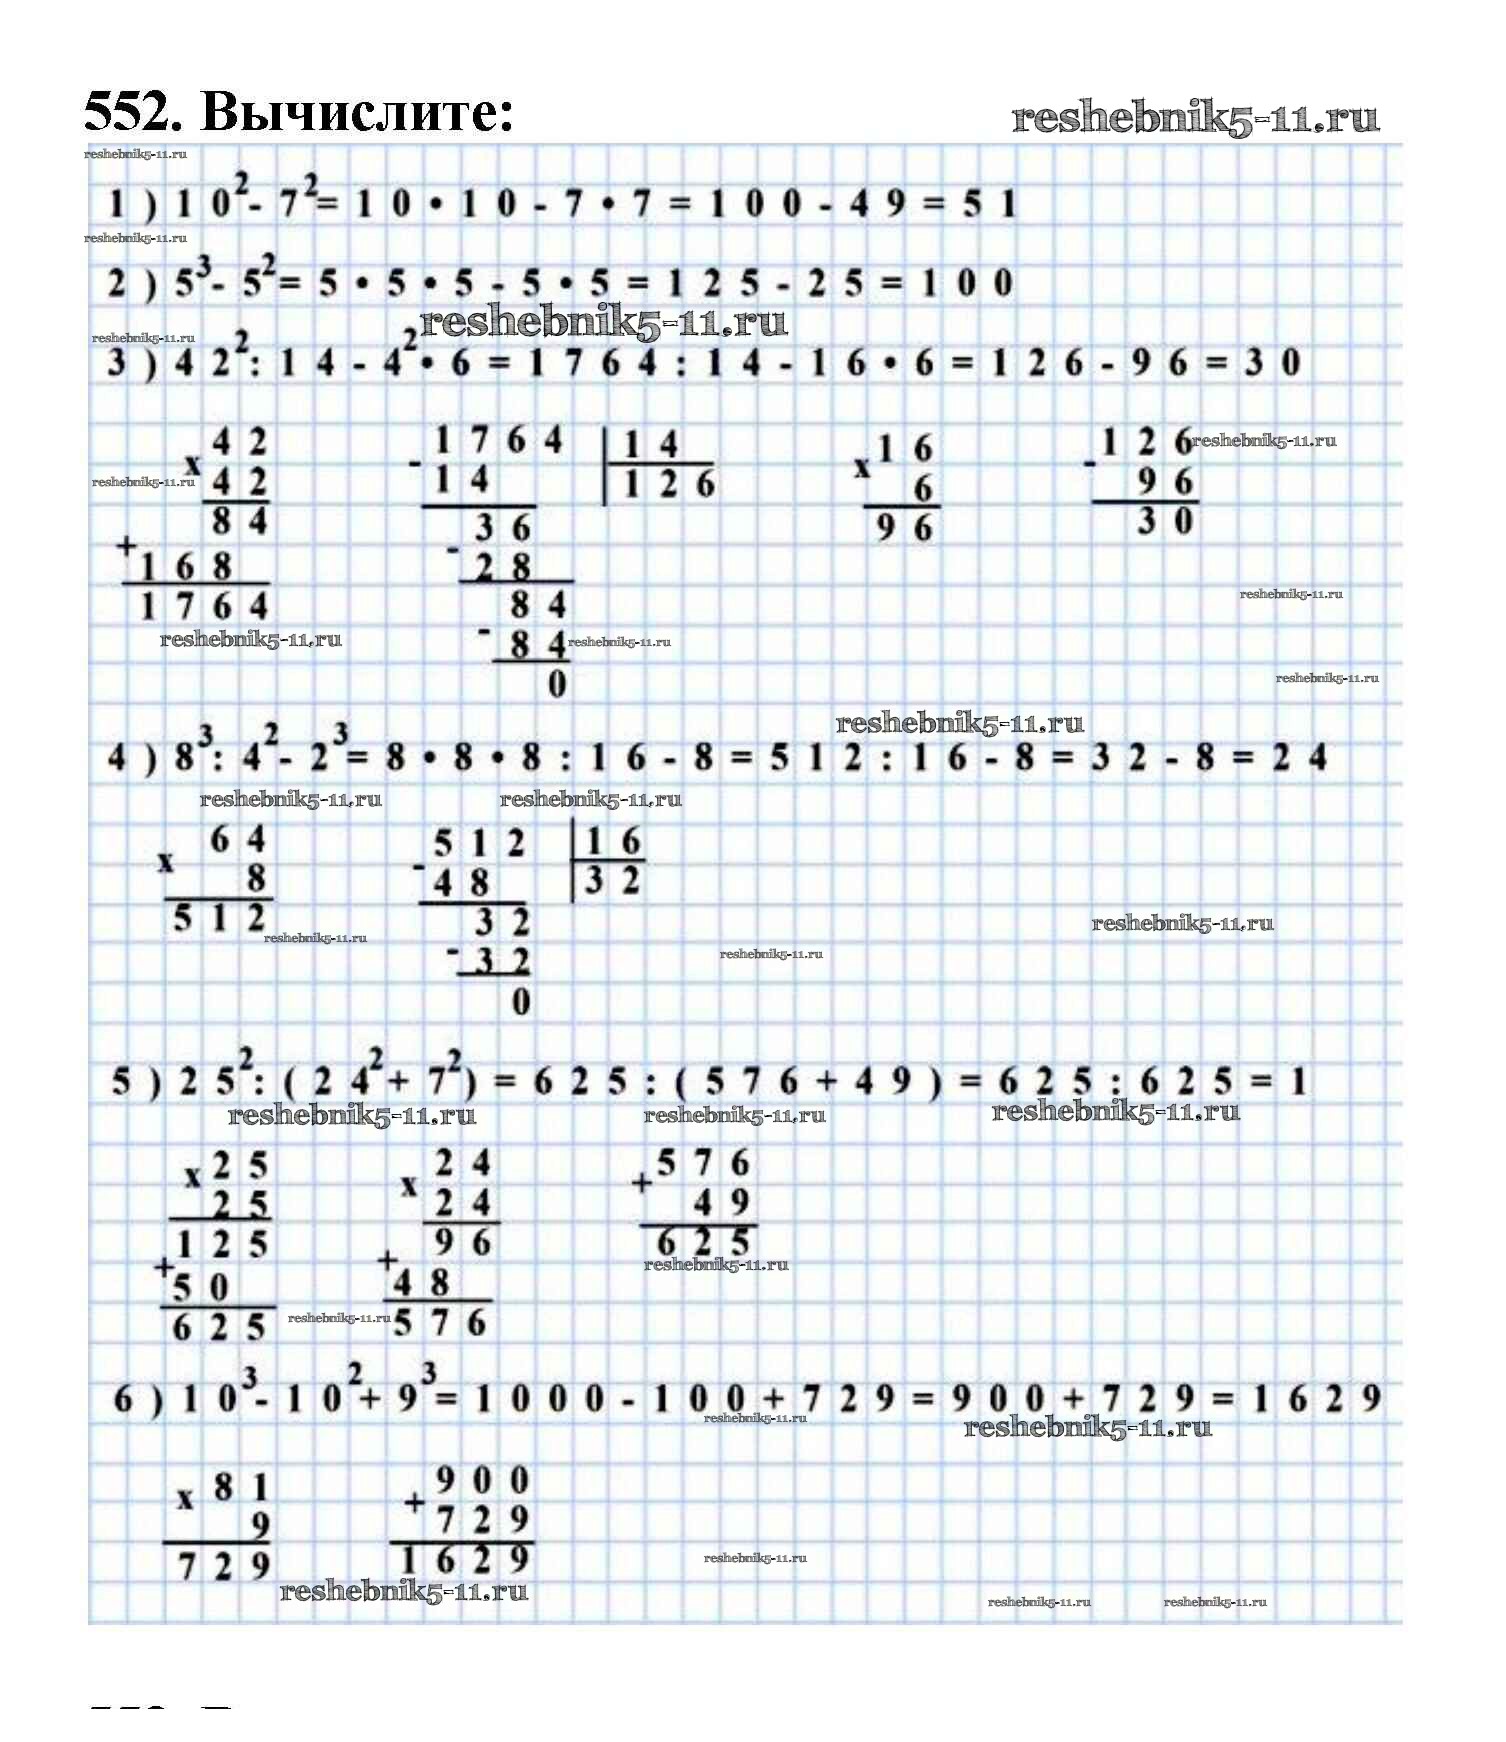 552. Вычислите:
reshebnik5-11.ru
reshebnik5-11.ru
1) 10²- 7²= 10 • 10 - 7 • 7 = 100 - 49 = 51
reshebnik5-11.ru
2) 5³- 5²= 5 • 5 • 5 - 5 • 5 = 125 - 25 = 100
reshebnik5-11.ru
reshebnik5-11.ru
3) 42²: 14 - 4²• 6 = 1764 : 14 - 16 • 6 = 126 - 96 = 30
42 1764 14 16 126 reshebnik5-11.ru
x - x -
reshebnik5-11.ru 42 14 126 6 96
84 36 96 30
+ -
168 28
1764 84 reshebnik5-11.ru
reshebnik5-11.ru - 84 reshebnik5-11.ru
0 reshebnik5-11.ru
reshebnik5-11.ru
4) 8³: 4²- 2³= 8 • 8 • 8 : 16 - 8 = 512 : 16 - 8 = 32 - 8 = 24
reshebnik5-11.ru reshebnik5-11.ru
64 512 16
x -
8 48 32
512 32 reshebnik5-11.ru
reshebnik5-11.ru
- 32 reshebnik5-11.ru
0
5) 25²: (24²+ 7²) = 625 : (576 + 49) = 625 : 625 = 1
reshebnik5-11.ru reshebnik5-11.ru reshebnik5-11.ru
x 25 24 576
x +
25 24 49
125 96 625
+ + reshebnik5-11.ru
50 48
625 reshebnik5-11.ru 576
6) 10³- 10²+ 9³= 1000 - 100 + 729 = 900 + 729 = 1629
reshebnik5-11.ru reshebnik5-11.ru
81 900
x +
9 729
729 1629 reshebnik5-11.ru
reshebnik5-11.ru reshebnik5-11.ru reshebnik5-11.ru